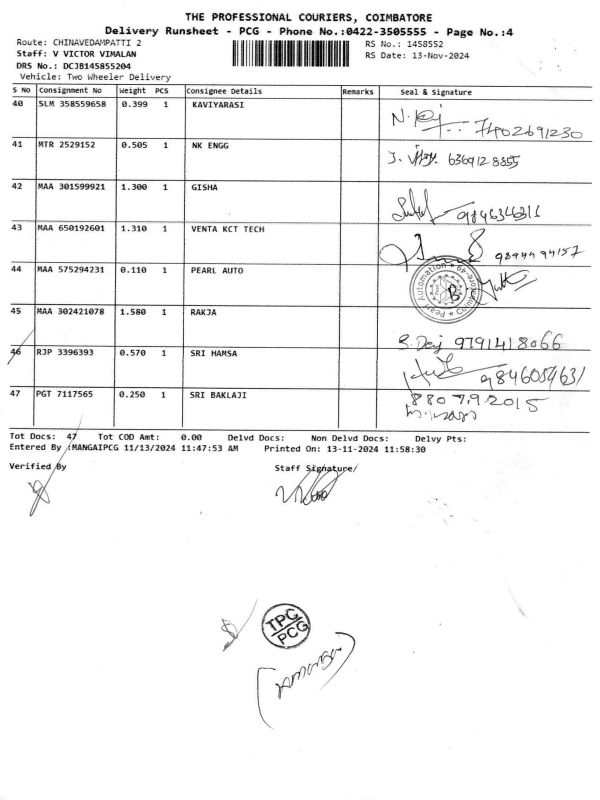 THE PROFESSIONAL COURIERS, COIMBATORE
Delivery Runsheet - PCG - Phone No.:0422-3505555 - Page No.:4
Route: CHINAVEDAMPATTI 2
RS No.: 1458552
Staff: V VICTOR VIMALAN
RS Date: 13-Nov-2024
DRS No.: DCJB145855204
Vehicle: Two Wheeler Delivery
S No Consignment No Weight PCS Consignee Details Remarks Seal & Signature
40 SLM 358559658 0.399 1 KAVIYARASI
7402691230
41 MTR 2529152 0.505 1 NK ENGG
6369128355
42 MAA 301599921 1.300 1 GISHA
9846346311
43 MAA 650192601 1.310 1 VENTA KCT TECH
9894494157
44 MAA 575294231 0.110 1 PEARL AUTO
Pearl Automation
45 MAA 302421078 1.580 1 RAKJA
9791418066
46 RJP 3396393 0.570 1 SRI HAMSA
9846054631
47 PGT 7117565 0.250 1 SRI BAKLAJI
880 7.9.2015
Tot Docs: 47 Tot COD Amt: 0.00 Delvd Docs: Non Delvd Docs: Delvy Pts:
Entered By :MANGAIPCG 11/13/2024 11:47:53 AM Printed On: 13-11-2024 11:58:30
Verified By Staff Signature/
TPC
PCG